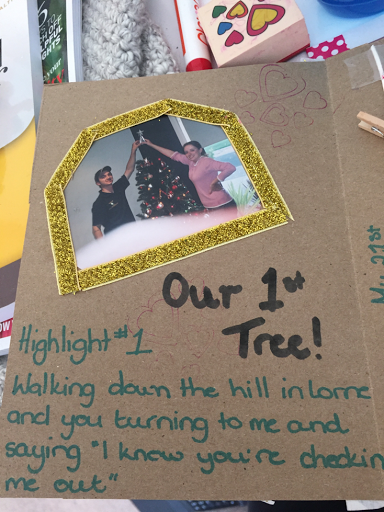 Our 1st
Tree!
Highlight #1
Walking down the hill in Lorne
and you turning to me and
saying "I know you're checkin
me out"